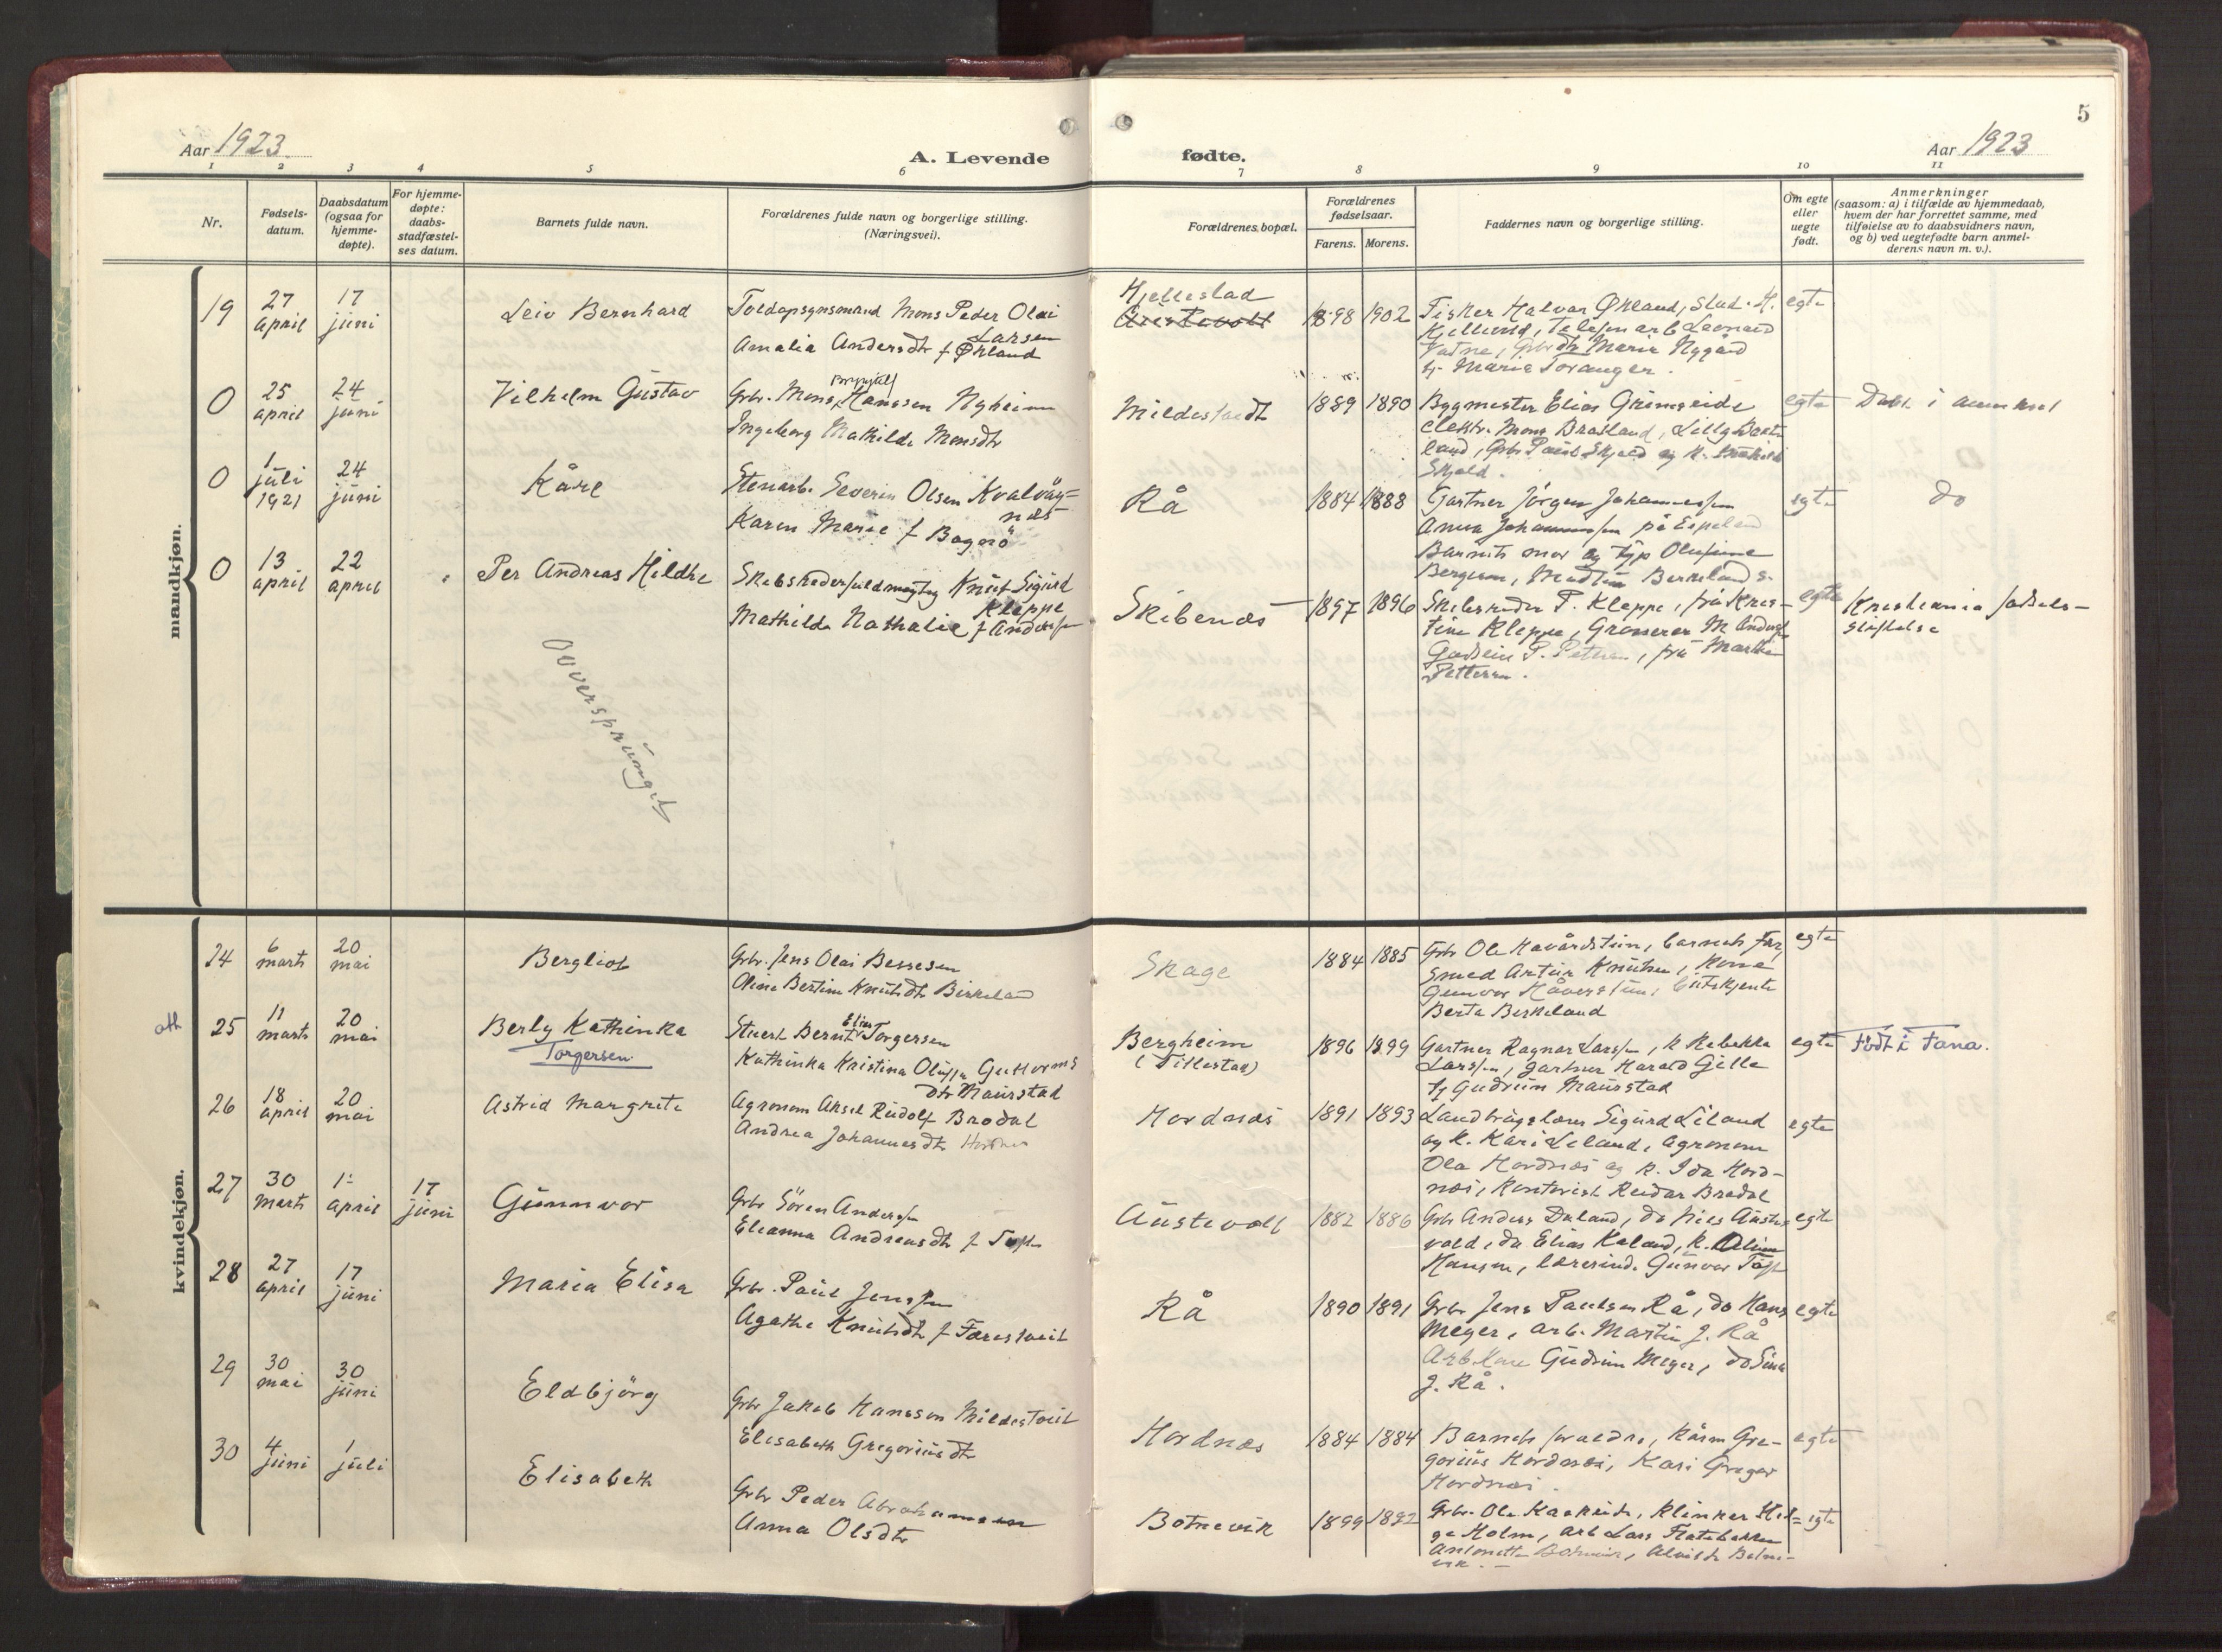 5
Aar 1923
A. Levende
fødte.
Aar 1923
1 2 3 4 5 6 7 8 9 10 11
Nr.
Fødsels-
datum.
Daabsdatum
(ogsaa for
hjemme-
døpte).
For hjemme-
døpte:
daabs-
stadfæstel-
ses datum.
Barnets fulde navn.
Forældrenes fulde navn og borgerlige stilling.
(Næringsvei).
Forældrenes bopæl.
Forældrenes
fødselsaar.
Farens. Morens.
Faddernes navn og borgerlige stilling.
Om egte
eller
uegte
født.
Anmerkninger
(saasom: a) i tilfælde av hjemmedaab,
hvem der har forrettet samme, med
tilføielse av to daabsvidners navn,
og b) ved uegtefødte barn anmel-
derens navn m. v.).
mandkjøn.
19
27
april
17
juni
Leiv Bernhard
Toldopsynsmand Mons Peder Olai
Larsen
Amalia Andersdtr f Økland
Hjellestad
1898 1902
Fisker Halvar Økland, Stud. H.
Vatne, Grbr dtr Marie Nygård
Marie Soranger.
egte
0
25
april
24
juni
Vilhelm Gustav
Grbr. Mons Hanssen Nyheim
Ingeborg Mathilde Monsdtr
Mildestvedt
1889 1890
Bygmester Elias Grimseide
Skjold.
egte
Døbt i
0
1
juli
1921
24
juni
Kåre
Stenarb. Severin Olsen Kvalvåg-
nes
Karen Marie f Bagerö
Rå
1884 1888
Gartner Jørgen Johannessen
Anna Johannessen på Espeland
Barnets mor og
egte
do
0
13
april
22
april
Per Andreas Hildhe
Skibsrederfuldmegtig Knut Sigurd
Kleppe
Mathilde Nathalie f Andersen
Skibenes
1897 1896
Skibsreder P. Kleppe, fru Kris-
tine Kleppe, Grosserer M. Anders
P. Pettersen, fru Martha
Pettersen.
egte
Kristiania fødsels-
stiftelse
Overspringet
kvindekjøn.
24
6
marts
20
mai
Bergliot
Grbr. Jens Olai Bessesen
Olene Bertine Knutsdtr Birkeland
Skage
1884 1885
Grbr Ole Havårdstun, barnets far,
Smed Artur Knutsen, Kone
Berta Birkeland
egte
att
25
11
marts
20
mai
Berly Kathinka
Torgersen
Stuert Bernt Elias Torgersen
Kathinka Kristina Oluffa Guttorms
dtr Maurstad
Bergheim
(Tillestad)
1896 1899
Gartner Ragnar Larssen, k Rebekka
Larssen, gartner Harald Gille
Gudrun Maurstad
egte
Født i Fana.
26
18
april
20
mai
Astrid Margrete
Agronom Aksel Rudolf Brodal
Andrea Johannesdtr Hordnes
Hordnæs
1891 1893
Landbrugslærer Sigurd Liland
og k. Kari Leland, Agronom
Ola Hordnæs og k. Ida Hord-
næs, Kontorist Reidar Brodal
egte
27
30
marts
1
april
17
juni
Gunnvor
Grbr Sören Anderssen
Eleanna Andreasdtr f Toft
Austevoll
1882 1886
Grbr Anders Daland, do Nils Auste-
vold, do Elias Kaland, k. Oline
Hansen, lærerinde Gunvor Toft
egte
28
27
april
17
juni
Maria Elisa
Grbr. Paul Jenssen
Agathe Knutsdtr f Færestveit
Rå
1890 1891
Grbr Jens Paulsen Rå, do Hans
Meyer, arb. Martin J. Rå
Arb kone Gudrun Meyer, do Sina
J. Rå.
egte
29
30
mai
30
juni
Eldbjörg
Grbr Jakob Hanssen Mildestveit
Elisabeth Gregoriusdtr
Hordnæs
1884 1884
Barnets forældre, Kåre Gre-
gorius Hordnæs, Kari Gregor
Hordnæs.
egte
30
4
juni
1
juli
Elisabeth
Grbr Peder Abrahamsen
Anna Olsdtr
Botnevik
1899 1892
Grbr. Ole
Holm, arb Lars Flatebakken
egte